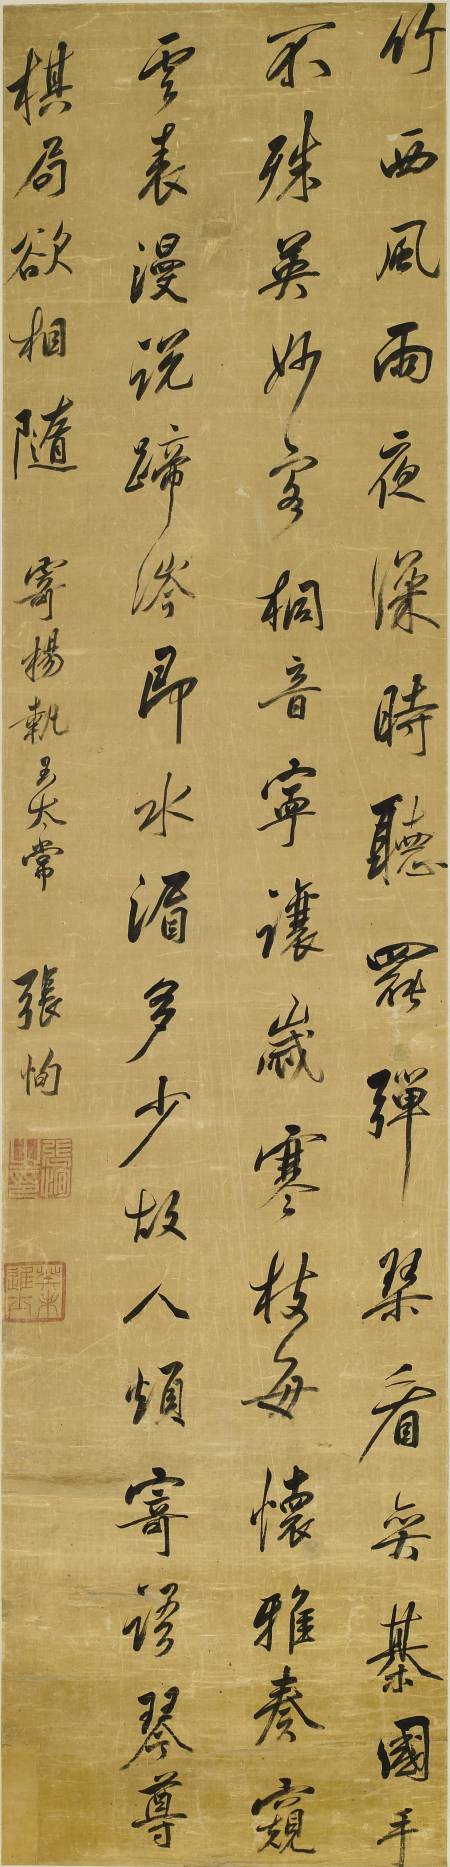 竹西風雨夜深時聽罷彈琴看奕棊國手
不殊英妙客桐音寧讓歲寒枝每懷雅奏窺
雲表漫說蹄涔即水湄多少故人煩寄語琴尊
棋局欲相隨 寄楊執玉太常 張恂